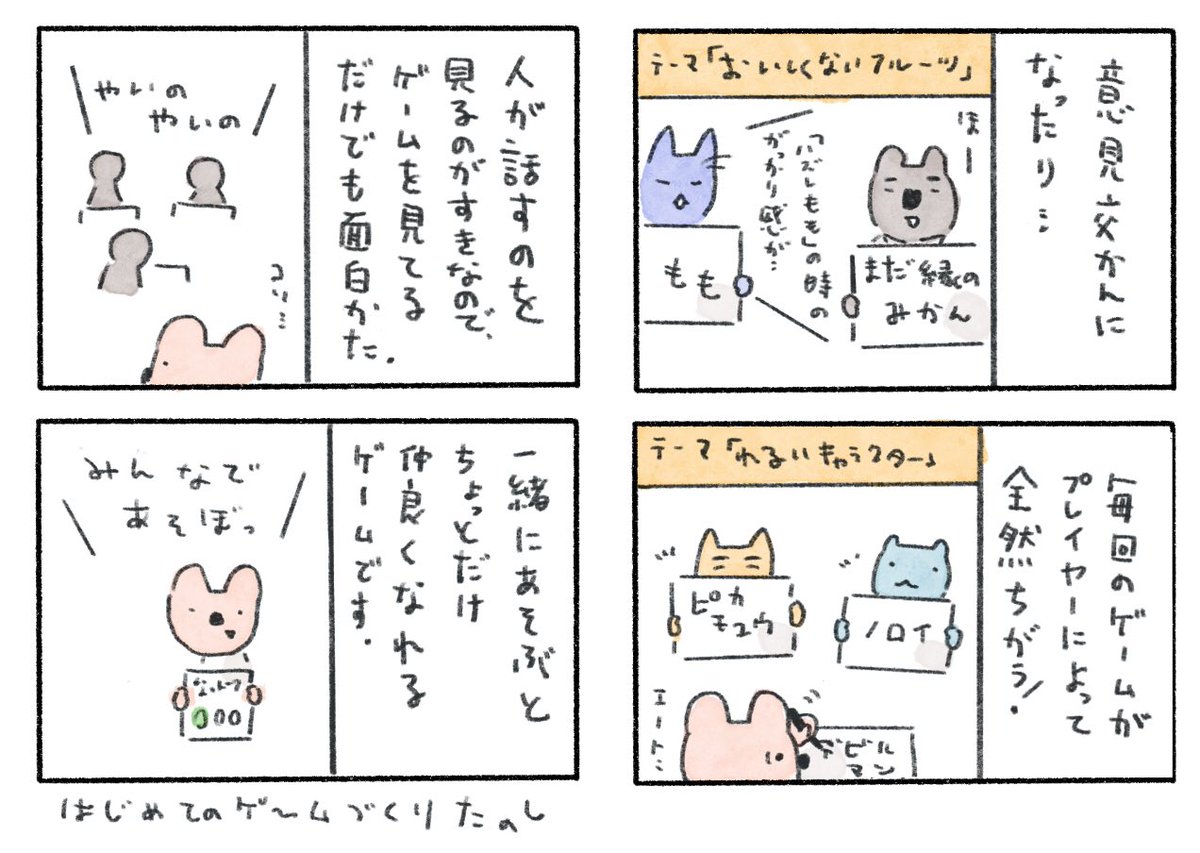 意見交かんに
なったり…
テーマ「おいしくないフルーツ」
ほー
まだ緑の
みかん
「ハズレもも」の時の
がっかり感が…
もも
毎回のゲームが
プレイヤーによって
全然ちがう!
テーマ「わるいキャラクター」
ノロイ
ピカ
チュウ
エート…
デビル
マン
人が話すのを
見るのがすきなので、
ゲームを見てる
だけでも面白かた.
やいの
やいの
コソ…
一緒にあそぶと
ちょっとだけ
仲良くなれる
ゲームです.
みんなで
あそぼっ
はじめてのゲームづくりたのし